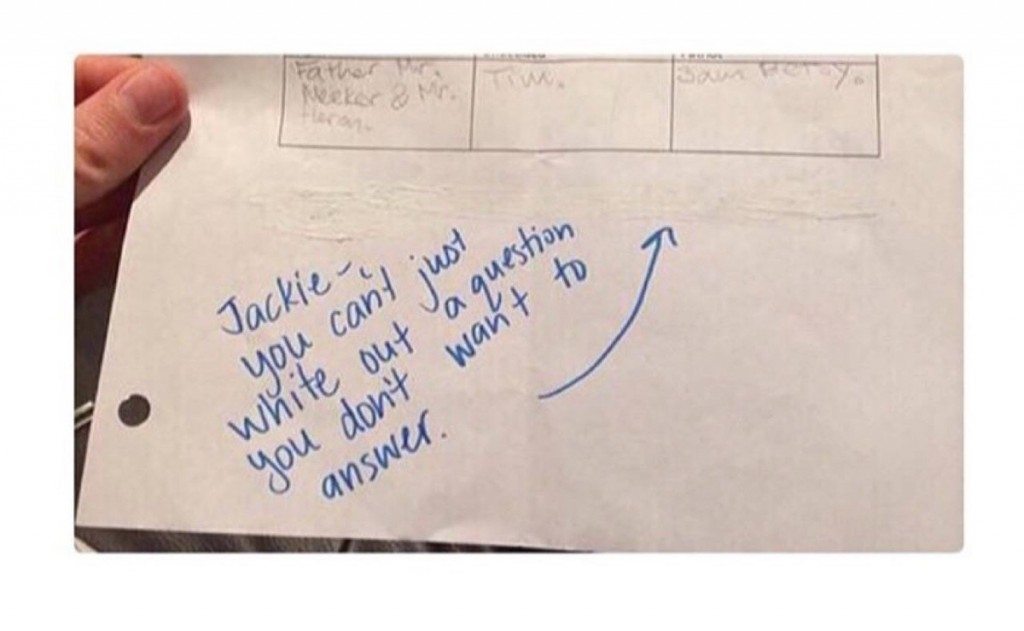 Father Mr.
Meeker & Mr.
Heron.
Tim.
Sam
Jackie-
you can't just
white out a question
you don't want to
answer.